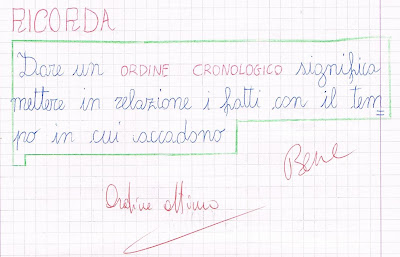 RICORDA
Dare un ORDINE CRONOLOGICO significa
mettere in relazione i fatti con il tem
po in cui accadono
Bene
Ordine ottimo